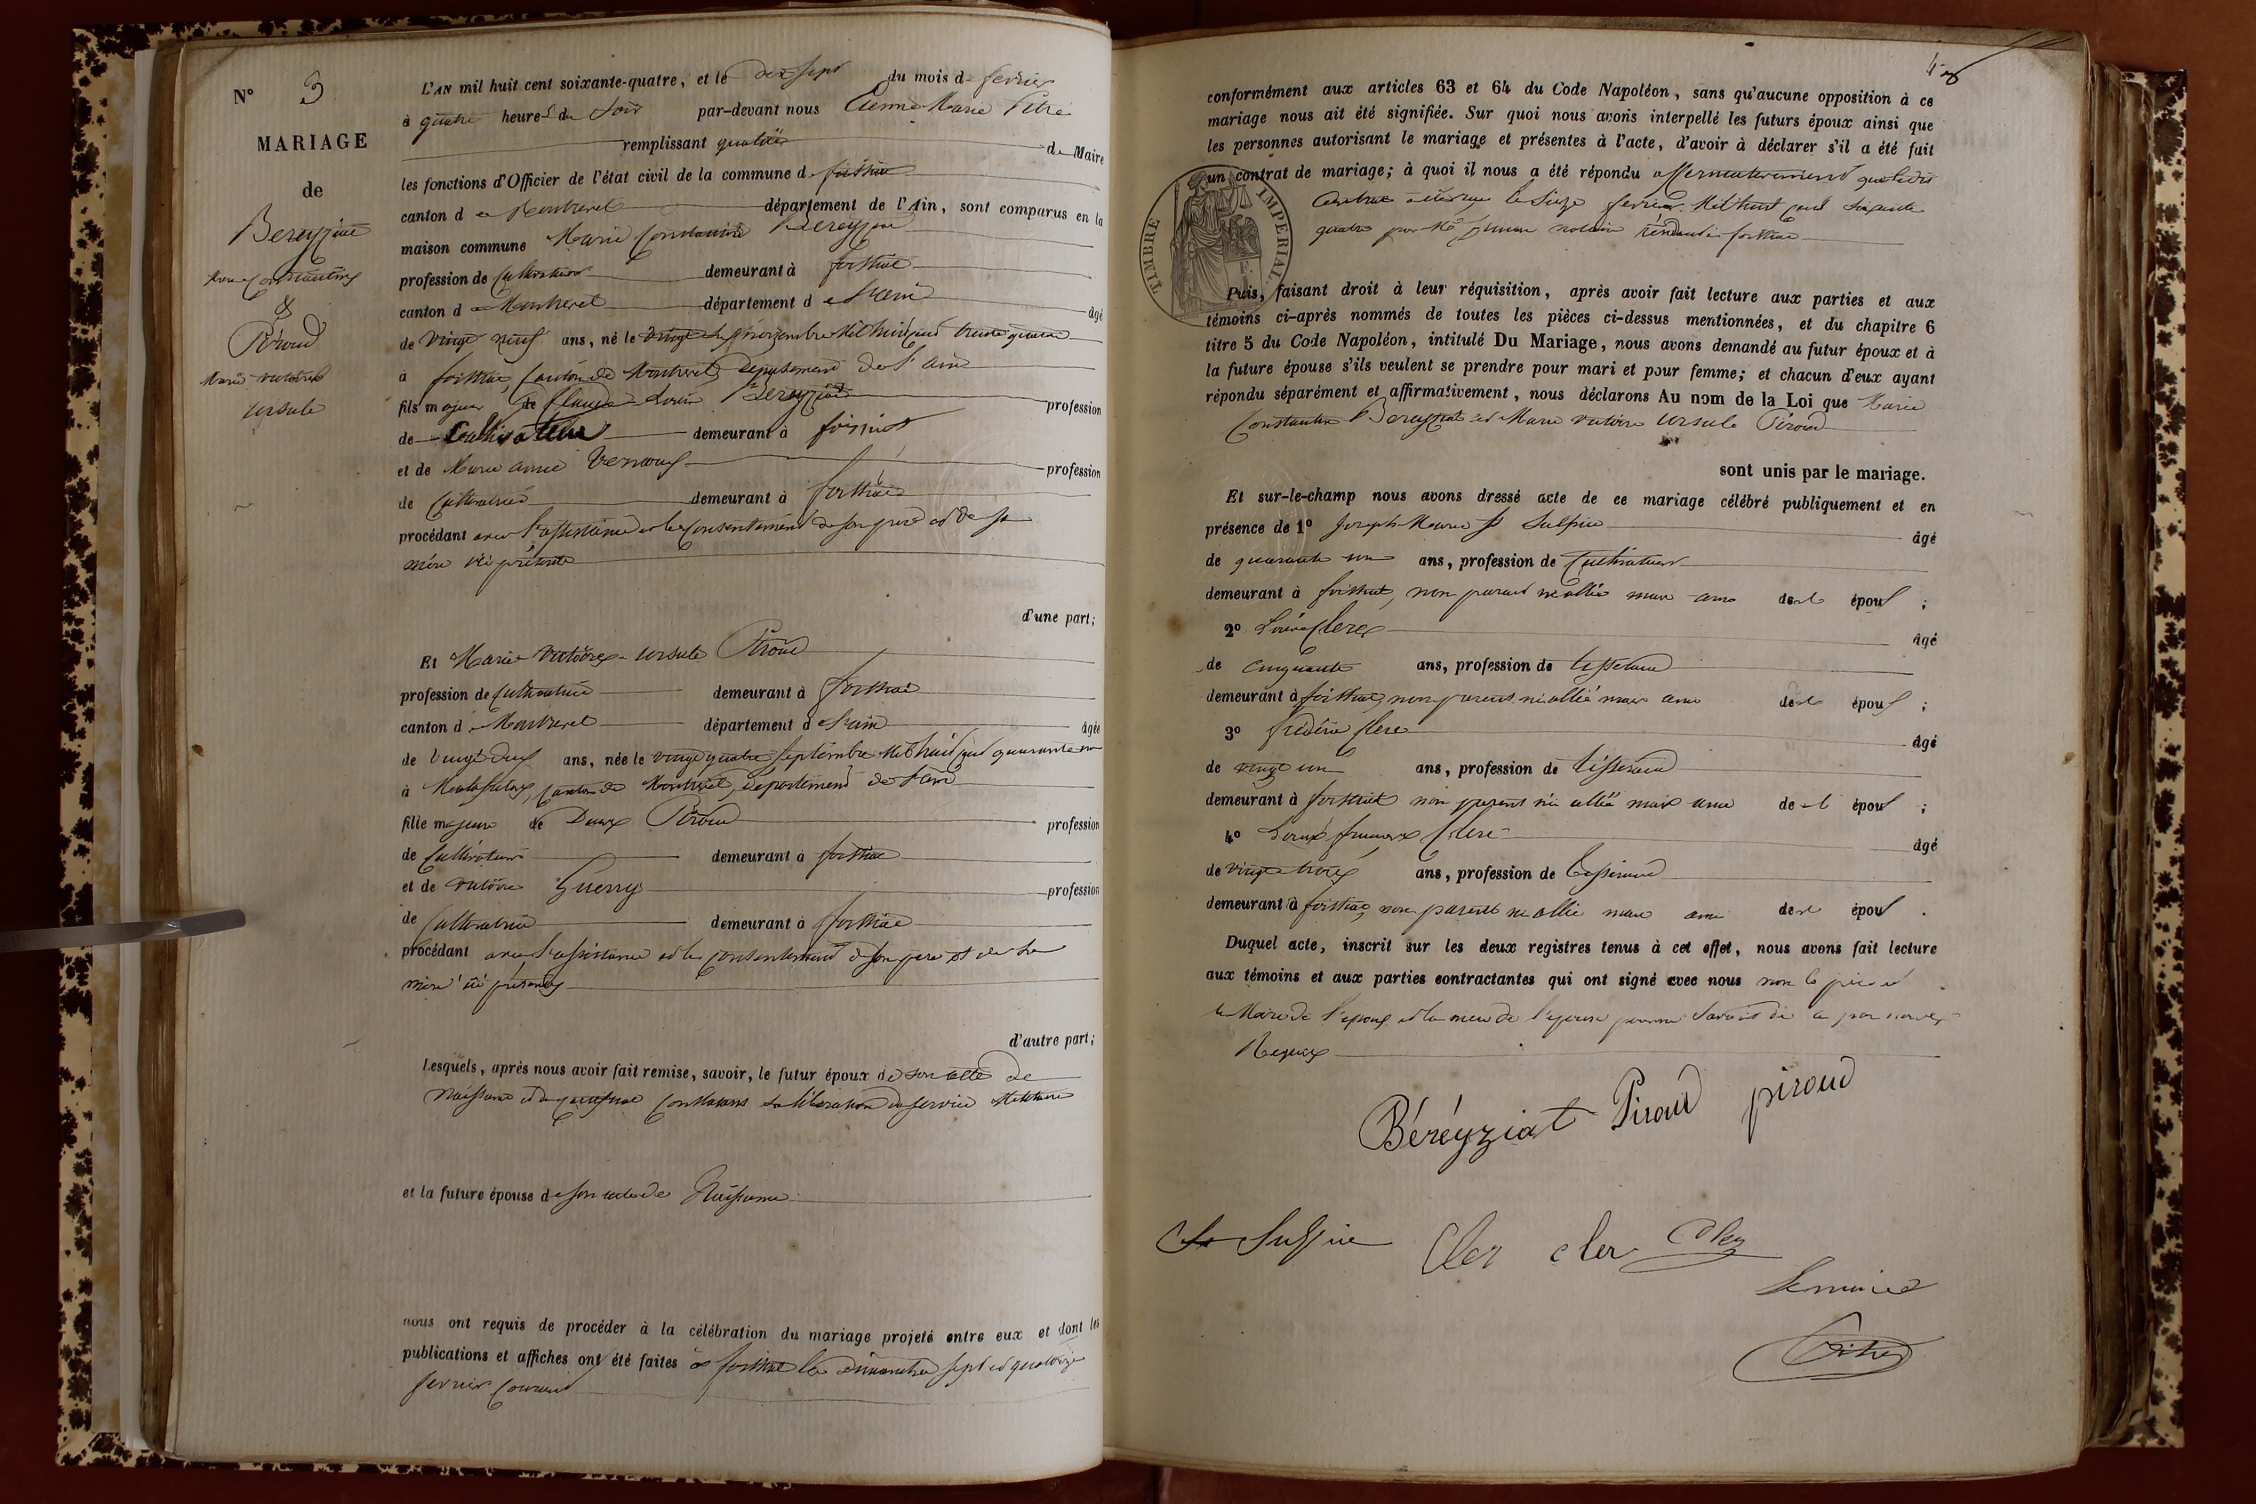 N° 3
MARIAGE
de
Bereyziat
Marie Constantin
&
Piroud
Marie Victoire
Ursule
L'AN mil huit cent soixante-quatre, et le dix sept du mois de fevrier
à quatre heures du soir par-devant nous Etienne Marie Vitré
remplissant qualité de Maire
les fonctions d'Officier de l'état civil de la commune de foissiat
canton de Montrevel département de l'Ain, sont comparus en la
maison commune Marie Constantin Bereyziat
profession de Cultivateur demeurant à foissiat
canton de Montrevel département de l'ain âgé
de vingt neuf ans, né le vingt novembre Mil huit cent trente quatre
à foissiat, Canton de Montrevel, département de l'ain
fils majeur de Claude Louis Bereyziat profession
de Cultivateur demeurant à foissiat
et de Marie anne Vernoux profession
de Cultivatrice demeurant à foissiat
procédant avec l'assistance et le Consentement de son père et de sa
mère ici présents
d'une part;
Et Marie Victoire Ursule Piroud
profession de Cultivatrice demeurant à foissiat
canton de Montrevel département de l'ain âgée
de vingt deux ans, née le vingt quatre septembre Mil huit cent quarante un
à Canton de Montrevel, département de l'ain
fille majeure de Denis Piroud profession
de Cultivateur demeurant à foissiat
et de Victoire Guerry profession
de Cultivatrice demeurant à foissiat
procédant avec l'assistance et le consentement de son père et de sa
mère ici présents
d'autre part;
Lesquels, après nous avoir fait remise, savoir, le futur époux de son acte de
Naissance et du Constatant sa libération du service Militaire
et la future épouse de son acte de Naissance
nous ont requis de procéder à la célébration du mariage projeté entre eux et dont les
publications et affiches ont été faites à foissiat les dimanches sept et quatorze
fevrier Courant
conformément aux articles 63 et 64 du Code Napoléon, sans qu'aucune opposition à ce
mariage nous ait été signifiée. Sur quoi nous avons interpellé les futurs époux ainsi que
les personnes autorisant le mariage et présentes à l'acte, d'avoir à déclarer s'il a été fait
un contrat de mariage; à quoi il nous a été répondu affirmativement que ledit
Contrat a été reçu le Seize fevrier Mil huit cent soixante
quatre par Me notaire résidant à foissiat
TIMBRE IMPERIAL
Puis, faisant droit à leur réquisition, après avoir fait lecture aux parties et aux
témoins ci-après nommés de toutes les pièces ci-dessus mentionnées, et du chapitre 6
titre 5 du Code Napoléon, intitulé Du Mariage, nous avons demandé au futur époux et à
la future épouse s'ils veulent se prendre pour mari et pour femme; et chacun d'eux ayant
répondu séparément et affirmativement, nous déclarons Au nom de la Loi que Marie
Constantin Bereyziat et Marie Victoire Ursule Piroud
sont unis par le mariage.
Et sur-le-champ nous avons dressé acte de ce mariage célébré publiquement et en
présence de 1° Joseph Marie St Sulpice âgé
de quarante un ans, profession de Cultivateur
demeurant à foissiat, non parent ni allié mais ami de l'époux;
2° Louis Clerc âgé
de cinquante ans, profession de tisserand
demeurant à foissiat, non parent ni allié mais ami de l'époux;
3° frédéric Clerc âgé
de vingt un ans, profession de tisserand
demeurant à foissiat non parent ni allié mais ami de l'époux;
4° Louis françois Clerc âgé
de vingt trois ans, profession de tisserand
demeurant à foissiat, non parent ni allié mais ami de l'époux.
Duquel acte, inscrit sur les deux registres tenus à cet effet, nous avons fait lecture
aux témoins et aux parties contractantes qui ont signé avec nous non le père et
la Mère de l'époux et la mère de l'épouse pour ne savoir de ce par nous
Requis
Béréyziat Piroud piroud
St Sulpice Cler cler Cler
Le maire
Vitré